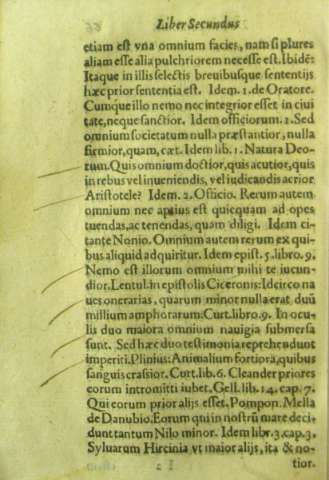 Liber Secundus
etiam est vna omnium facies, nam si plures
aliam esse alia pulchriorem necesse est. Ibidē:
Itaque in illis selectis breuibusque sententijs
hæc prior sententia est. Idem. 1. de Oratore.
Cumque illo nemo nec integrior esset in ciui
tate, neque sanctior. Idem officiorum. 1. Sed
omnium societatum nulla præstantior, nulla
firmior, quam, cæt. Idem lib. 1. Natura Deo-
rum. Quis omnium doctior, quis acutior, quis
in rebus vel inueniendis, vel iudicandis acrior
Aristotele? Idem. 2. Officio. Rerum autem
omnium nec aptius est quicquam ad opes
tuendas, ac tenendas, quam diligi. Idem ci-
tante Nonio. Omnium autem rerum ex qui-
bus aliquid adquiritur. Idem epist. 5. libro. 9.
Nemo est illorum omnium mihi te iucun-
dior. Lentul. in epistolis Ciceronis: Idcirco na
ues onerarias, quarum minor nulla erat duū
millium amphorarum. Curt. libro. 9. In ocu-
lis duo maiora omnium nauigia submersa
sunt. Sed hæc duo testimonia reprehendunt
imperiti. Plinius: Animalium fortiora, quibus
sanguis crassior. Curt. lib. 6. Cleander priores
eorum intromitti iubet. Gell. lib. 14. cap. 7.
Qui eorum prior alijs esset. Pompon. Mella
de Danubio. Eorum qui in nostrū mare deci-
dunt tantum Nilo minor. Idem libr. 3. cap. 3.
Syluarum Hircinia vt maior alijs, ita & no-
tior.